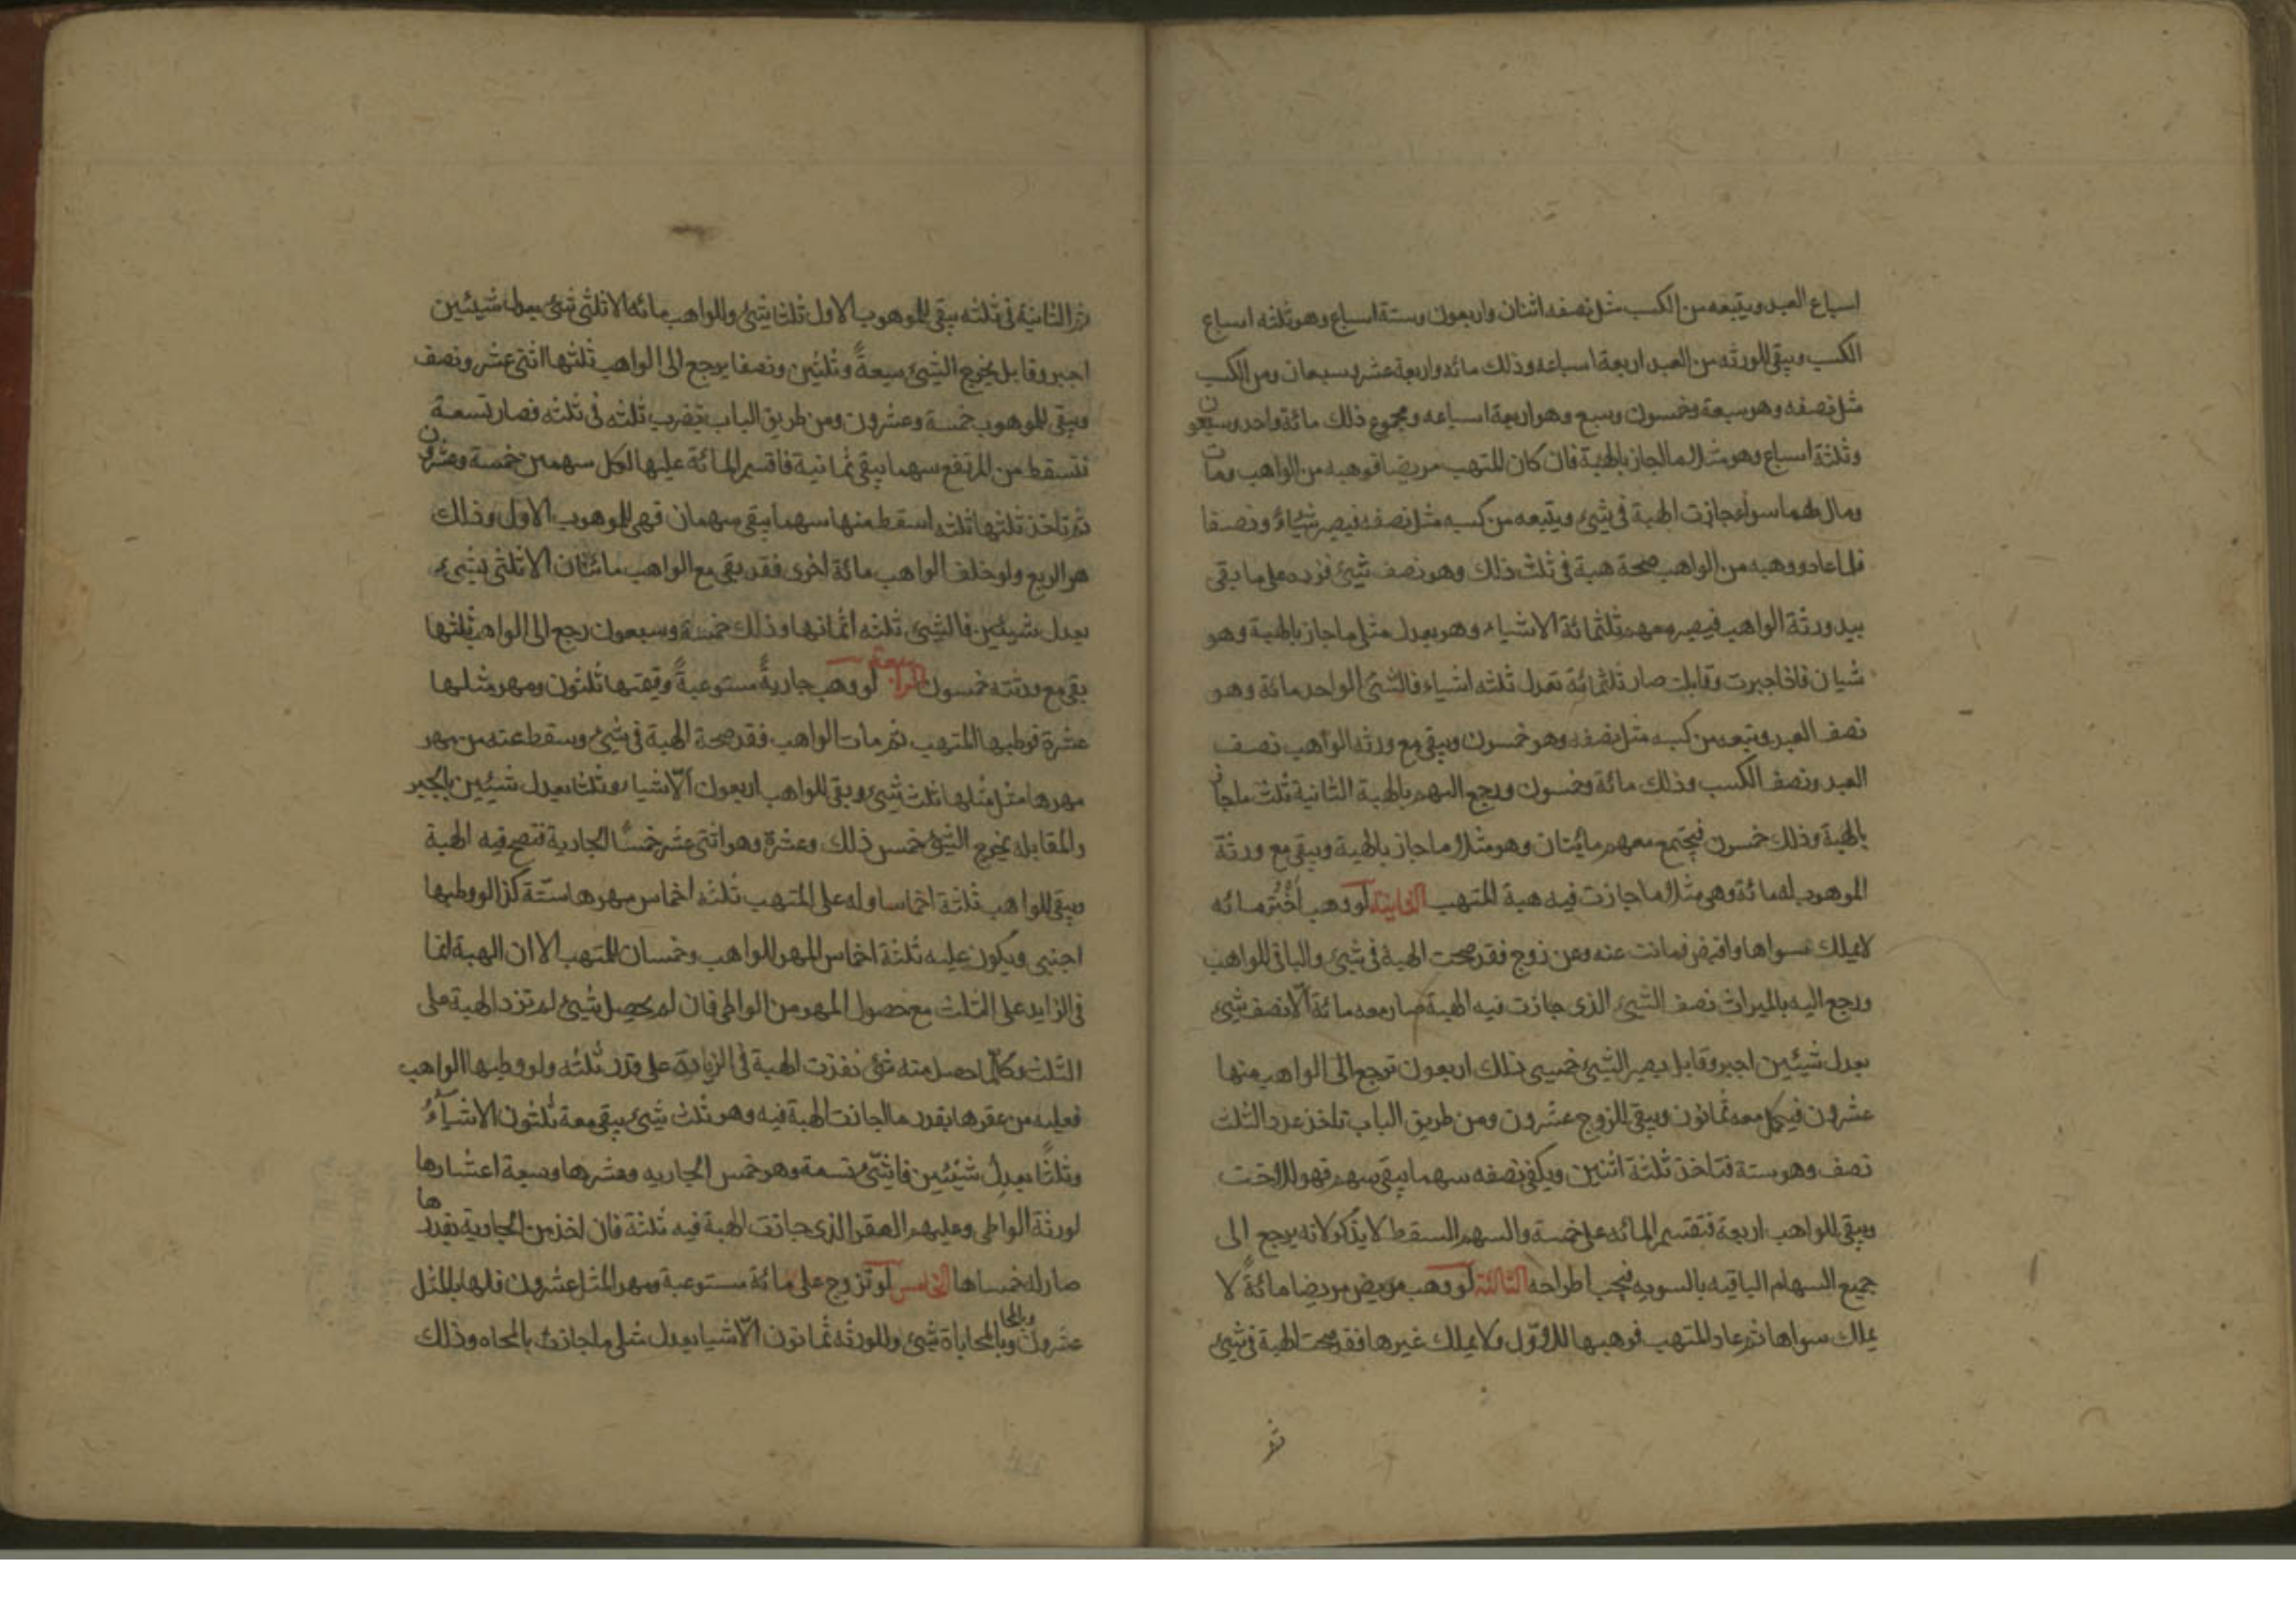 اسباع العبد ويتبعه من الكسب مثل نصفه اثنان واربعون وستة اسباع وهو ثلثه اسباع
الكسب ويبقى للورثه من العبد اربعة اسباعه وذلك مائه واربعة عشر وسبعان ومن الكسب
مثل نصفه وهو سبعة وخمسون وسبع وهو اربعة اسباعه ومجموع ذلك مائة واحد وسبعون
وثلثة اسباع وهو مثلا ما جاز بالهبة فان كان المتهب مريضا فوهبه من الواهب ومات
ومال لهما سواه جازت الهبة في شئ ويتبعه من كسبه مثل نصفه فيصير شياء ونصفا
فلما عاد ووهبه من الواهب صحة هبة في ثلث ذلك وهو نصف شئ فزده على ما بقى
بيد ورثة الواهب فيصير معهم ثلثمائة الا شياء وهو يعدل مثلى ما جاز بالهبة وهو
شيان فاذا جبرت وقابلت صار ثلثمائة تعدل ثلثه اشياء فالشئ الواحد مائة وهو
نصف العبد وتبعه من كسبه مثل نصفه وهو خمسون ويبقى مع ورثه الواهب نصف
العبد ونصف الكسب وذلك مائة وخمسون ورجع اليهم بالهبة الثانية ثلث ما جاز
بالهبة وذلك خمسون فيجتمع معهم مائتان وهو مثلا ما جاز بالهبة ويبقى مع ورثة
الموهوب له مائة وهى مثلا ما جازت فيه هبة المتهب الثانية لو وهب اخته مائه
لا يملك سواها واقبض فماتت عنه وعن زوج فقد صحت الهبة في شئ والباقى للواهب
ورجع اليه بالميراث نصف الشئ الذى جازت فيه الهبة صار معه مائة الا نصف شئ
يعدل شيئين اجبر وقابل يصير الشئ خمسى ذلك اربعون ترجع الى الواهب منها
عشرون فيكمل معه ثمانون ويبقى للزوج عشرون ومن طريق الباب تاخذ عدد الثلث
نصف وهو ستة فتاخذ ثلثة اثنين ويكفى نصفه سهما يبقى سهم فهو للاخت
ويبقى للواهب اربعة فتقسم المائه على خمسة والسهم المسقط لا يذكر لانه يرجع الى
جميع السهام الباقيه بالسويه فيجب اطراحه الثالثة لو وهب مريض مريضا مائة لا
يملك سواها ثم عاد المتهب فوهبها للاول ولا يملك غيرها فقد صحت الهبة في شئ
ثم
ثم الثانية في ثلثه يبقى للموهوب الاول ثلثا شئ وللواهب مائه الا ثلثى شئ يعدل شيئين
اجبر وقابل يخرج الشئ سبعة وثلثين ونصفا يرجع الى الواهب ثلثها اثنى عشر ونصف
ويبقى للموهوب خمسة وعشرون ومن طريق الباب تضرب ثلثه في ثلثه فصار تسعة
تسقط من المرتفع سهما يبقى ثمانية فاقسم المائة عليها لكل سهمين خمسة وعشرون
ثم تاخذ ثلثها ثلثه اسقط منها سهما يبقى سهمان فهى للموهوب الاول وذلك
هو الربع ولو خلف الواهب مائة اخرى فقد بقى مع الواهب مائتان الا ثلثى شئ
يعدل شيئين فالشئ ثلثه اثمانها وذلك خمسة وسبعون رجع الى الواهب ثلثها
بقى مع ورثته خمسون الرابعة لو وهب جارية مستوعبة وقيمتها ثلثون ومهر مثلها
عشرة فوطيها المتهب ثم مات الواهب فقد صحة الهبة في شئ وسقط عنه من مهر
مهرها مثل مثلها ثلث شئ وبقى للواهب اربعون الا شيا وثلثا يعدل شيئين بالجبر
والمقابله يخرج الشئ خمس ذلك وعشرة وهو اثنى عشر خمسا الجارية فتصح فيه الهبة
ويبقى للواهب ثلثة اخماسا وله على المتهب ثلثه اخماس مهرها ستة كذا لو وطيها
اجنبى ويكون عليه ثلثة اخماس المهر للواهب وخمسان للمتهب الا ان الهبة انما
في الزايد على الثلث مع حصول المهر من الواطى فان لم يحصل شئ لم تزد الهبة على
الثلث وكلما حصل منه شئ نفذت الهبة في الزيادة على قدر ثلثه ولو وطيها الواهب
فعليه من عقرها بقدر ما جازت الهبة فيه وهو ثلث شئ يبقى معه ثلثون الا شياء
وثلثا يعدل شيئين فالشئ تسعة وهو خمس الجاريه وعشرها وسبعة اعشارها
لورثة الواطى وعليهم العقر الذى جازت الهبة فيه ثلثة فان اخذ من الجارية بقدرها
صار له خمساها الخامس لو تزوج على مائة مستوعبة ومهر المثل عشرون فلها بالمثل
عشرون وبالمحاباة شئ وللورثه ثمانون الا شيا يعدل مثلى ما جازت بالمحاه وذلك